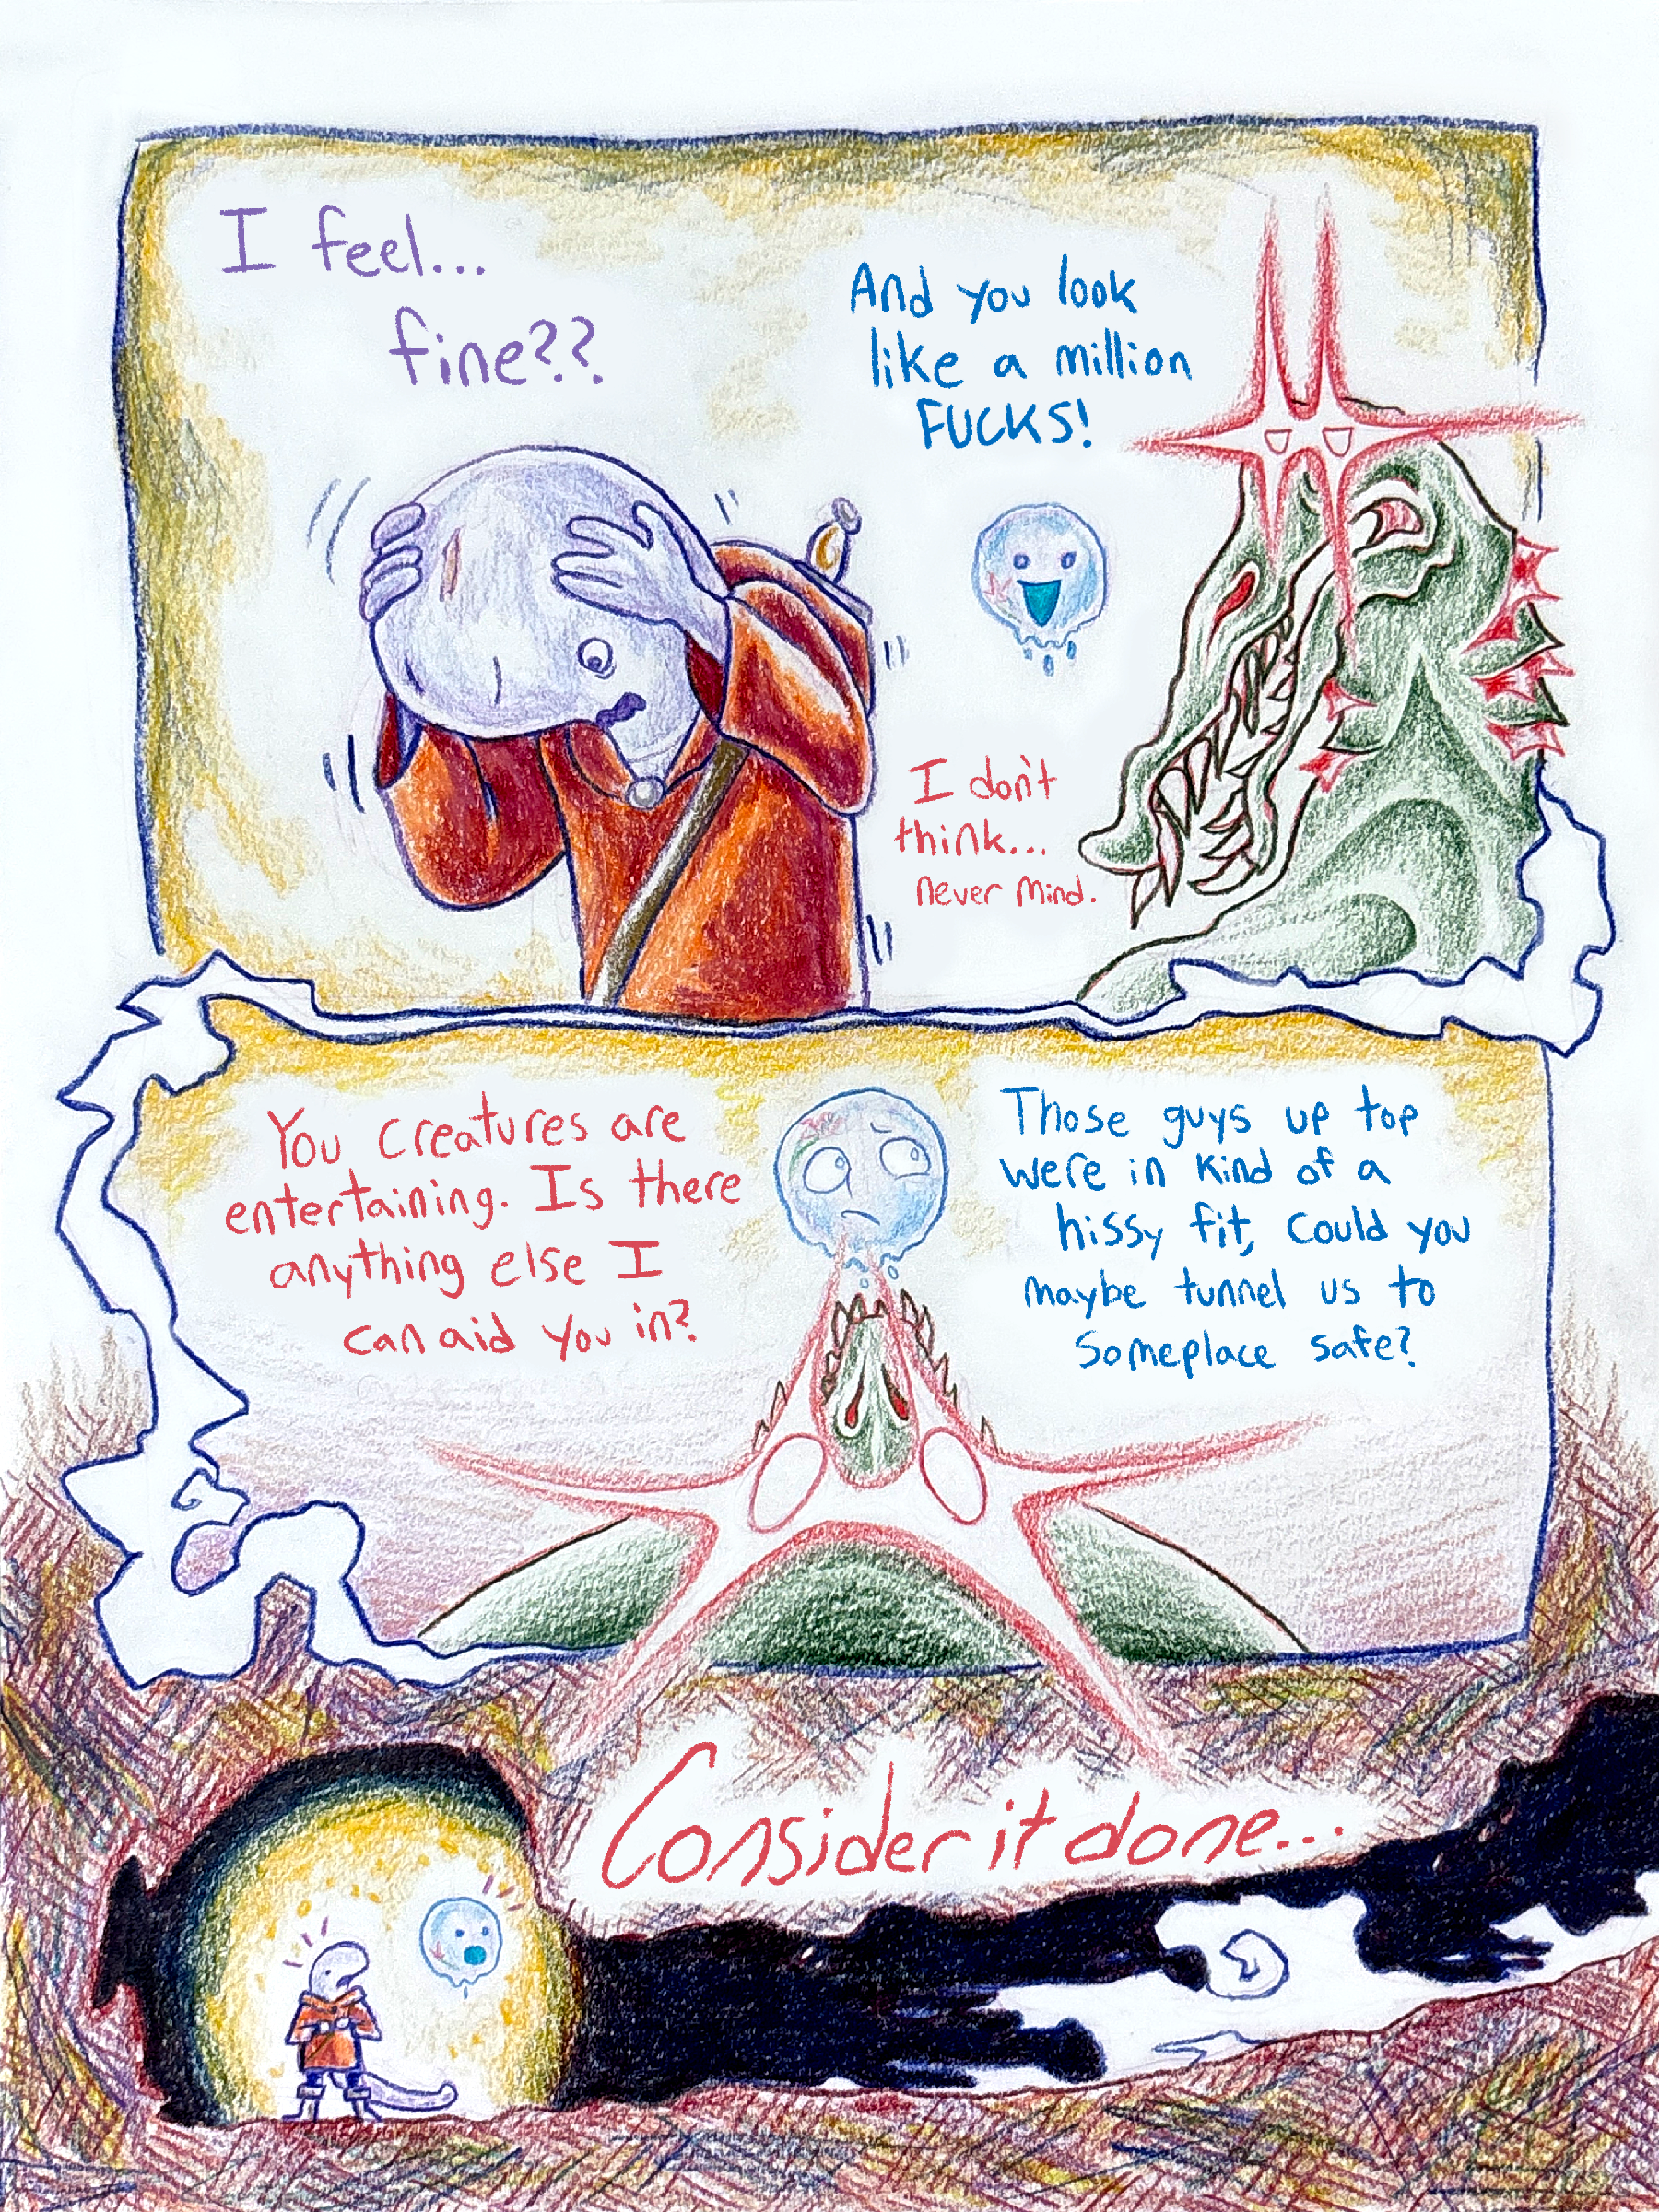 I feel...
fine??
And you look
like a million
FUCKS!
I don't
think...
never mind.
You creatures are
entertaining. Is there
anything else I
can aid you in?
Those guys up top
were in kind of a
hissy fit, could you
maybe tunnel us to
someplace safe?
Consider it done...